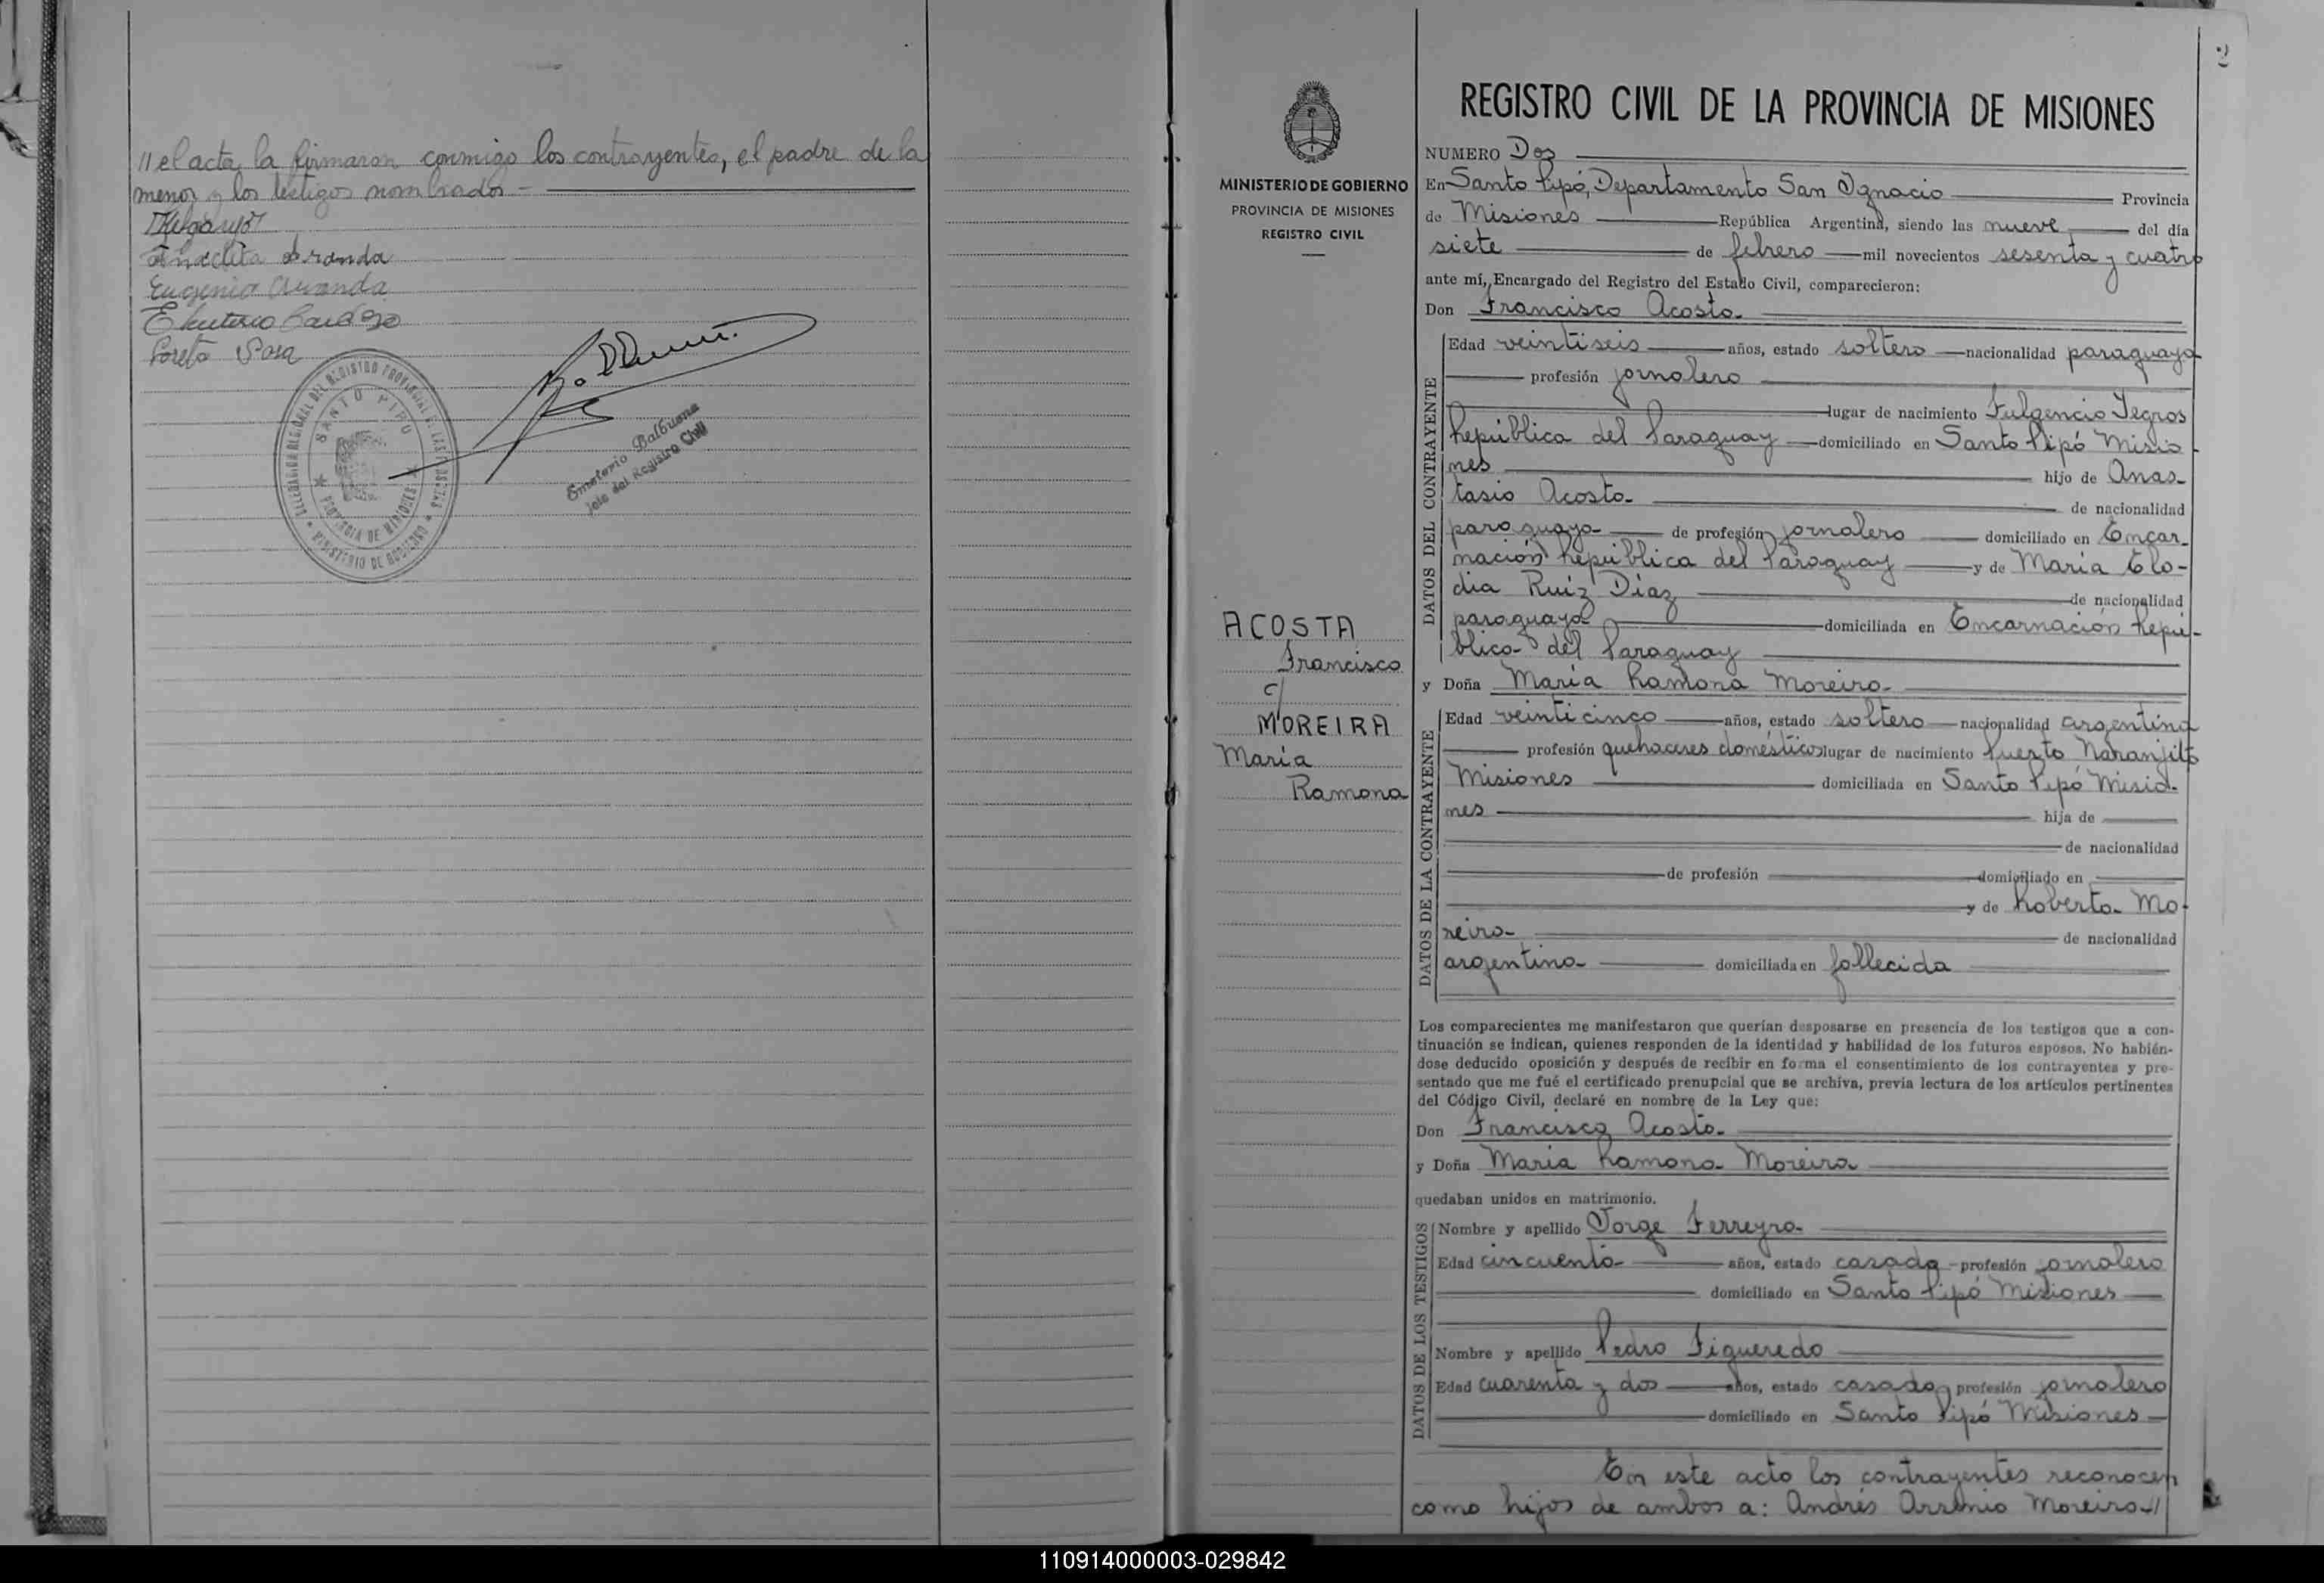 // el acta, la firmaron conmigo los contrayentes, el padre de la
menor y los testigos nombrados -
Anaclita Aranda
Eugenio Aranda
Eleuterio Cardozo
Loreto Sosa
DELEGACION REGIONAL DEL REGISTRO PROVINCIAL DE LAS PERSONAS
SANTO PIPO
PROVINCIA DE MISIONES
MINISTERIO DE GOBIERNO
Emeterio Balbuena
Jefe del Registro Civil
2
MINISTERIO DE GOBIERNO
PROVINCIA DE MISIONES
REGISTRO CIVIL
ACOSTA
Francisco
c/
MOREIRA
María
Ramona
REGISTRO CIVIL DE LA PROVINCIA DE MISIONES
NUMERO Dos
En Santo Pipó, Departamento San Ignacio Provincia
de Misiones República Argentina, siendo las nueve del día
siete de febrero mil novecientos sesenta y cuatro
ante mí, Encargado del Registro del Estado Civil, comparecieron:
Don Francisco Acosta
DATOS DEL CONTRAYENTE
Edad veintiseis años, estado soltero nacionalidad paraguaya
profesión jornalero
lugar de nacimiento Fulgencio Yegros
República del Paraguay domiciliado en Santo Pipó Misio-
nes hijo de Anas-
tasio Acosta de nacionalidad
paraguaya de profesión jornalero domiciliado en Encar-
nación República del Paraguay y de María Elo-
dia Ruiz Díaz de nacionalidad
paraguaya domiciliada en Encarnación Repú-
blica del Paraguay
y Doña María Ramona Moreira
DATOS DE LA CONTRAYENTE
Edad veinticinco años, estado soltero nacionalidad argentina
profesión quehaceres domésticos lugar de nacimiento Puerto Naranjito
Misiones domiciliada en Santo Pipó Misio-
nes hija de
de nacionalidad
de profesión domiciliado en
y de Roberta Mo-
reira de nacionalidad
argentina domiciliada en fallecida
Los comparecientes me manifestaron que querían desposarse en presencia de los testigos que a con-
tinuación se indican, quienes responden de la identidad y habilidad de los futuros esposos. No habién-
dose deducido oposición y después de recibir en forma el consentimiento de los contrayentes y pre-
sentado que me fué el certificado prenupcial que se archiva, previa lectura de los artículos pertinentes
del Código Civil, declaré en nombre de la Ley que:
Don Francisco Acosta
y Doña María Ramona Moreira
quedaban unidos en matrimonio.
DATOS DE LOS TESTIGOS
Nombre y apellido Jorge Ferreyra
Edad cincuenta años, estado casado profesión jornalero
domiciliado en Santo Pipó Misiones
Nombre y apellido Pedro Figueredo
Edad cuarenta y dos años, estado casado profesión jornalero
domiciliado en Santo Pipó Misiones
En este acto los contrayentes reconocen
como hijos de ambos a: Andrés Arsenio Moreira //
110914000003-029842